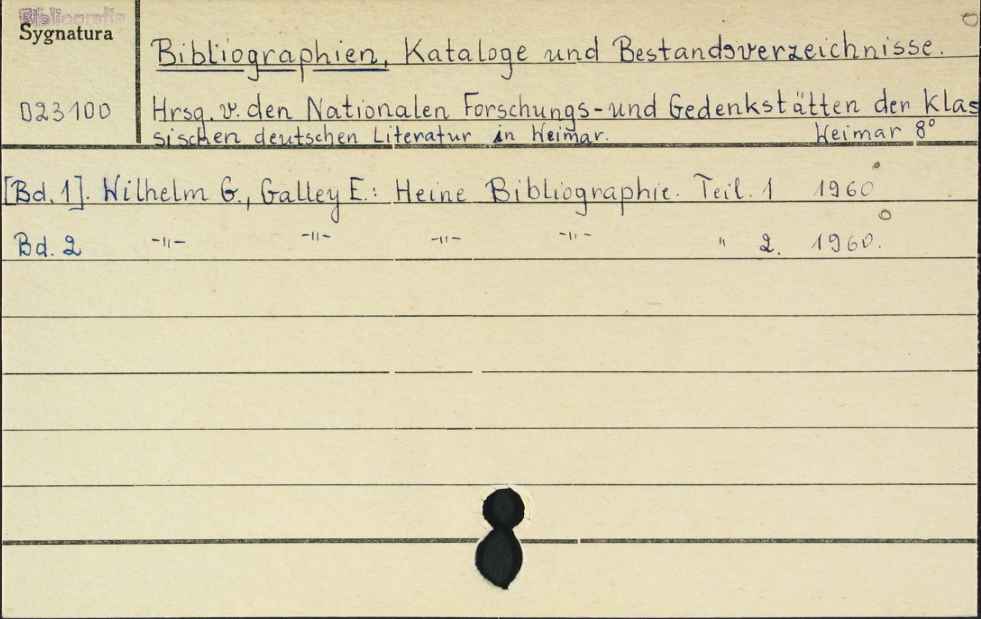 Bibliografia
Sygnatura
Bibliographien, Kataloge und Bestandsverzeichnisse.
023100
Hrsg. v. den Nationalen Forschungs- und Gedenkstätten der klas
sischen deutschen Literatur in Weimar. Weimar 8°
[Bd. 1]. Wilhelm G., Galley E.: Heine Bibliographie. Teil. 1 1960
Bd. 2 -"- -"- -"- -"- " 2. 1960.